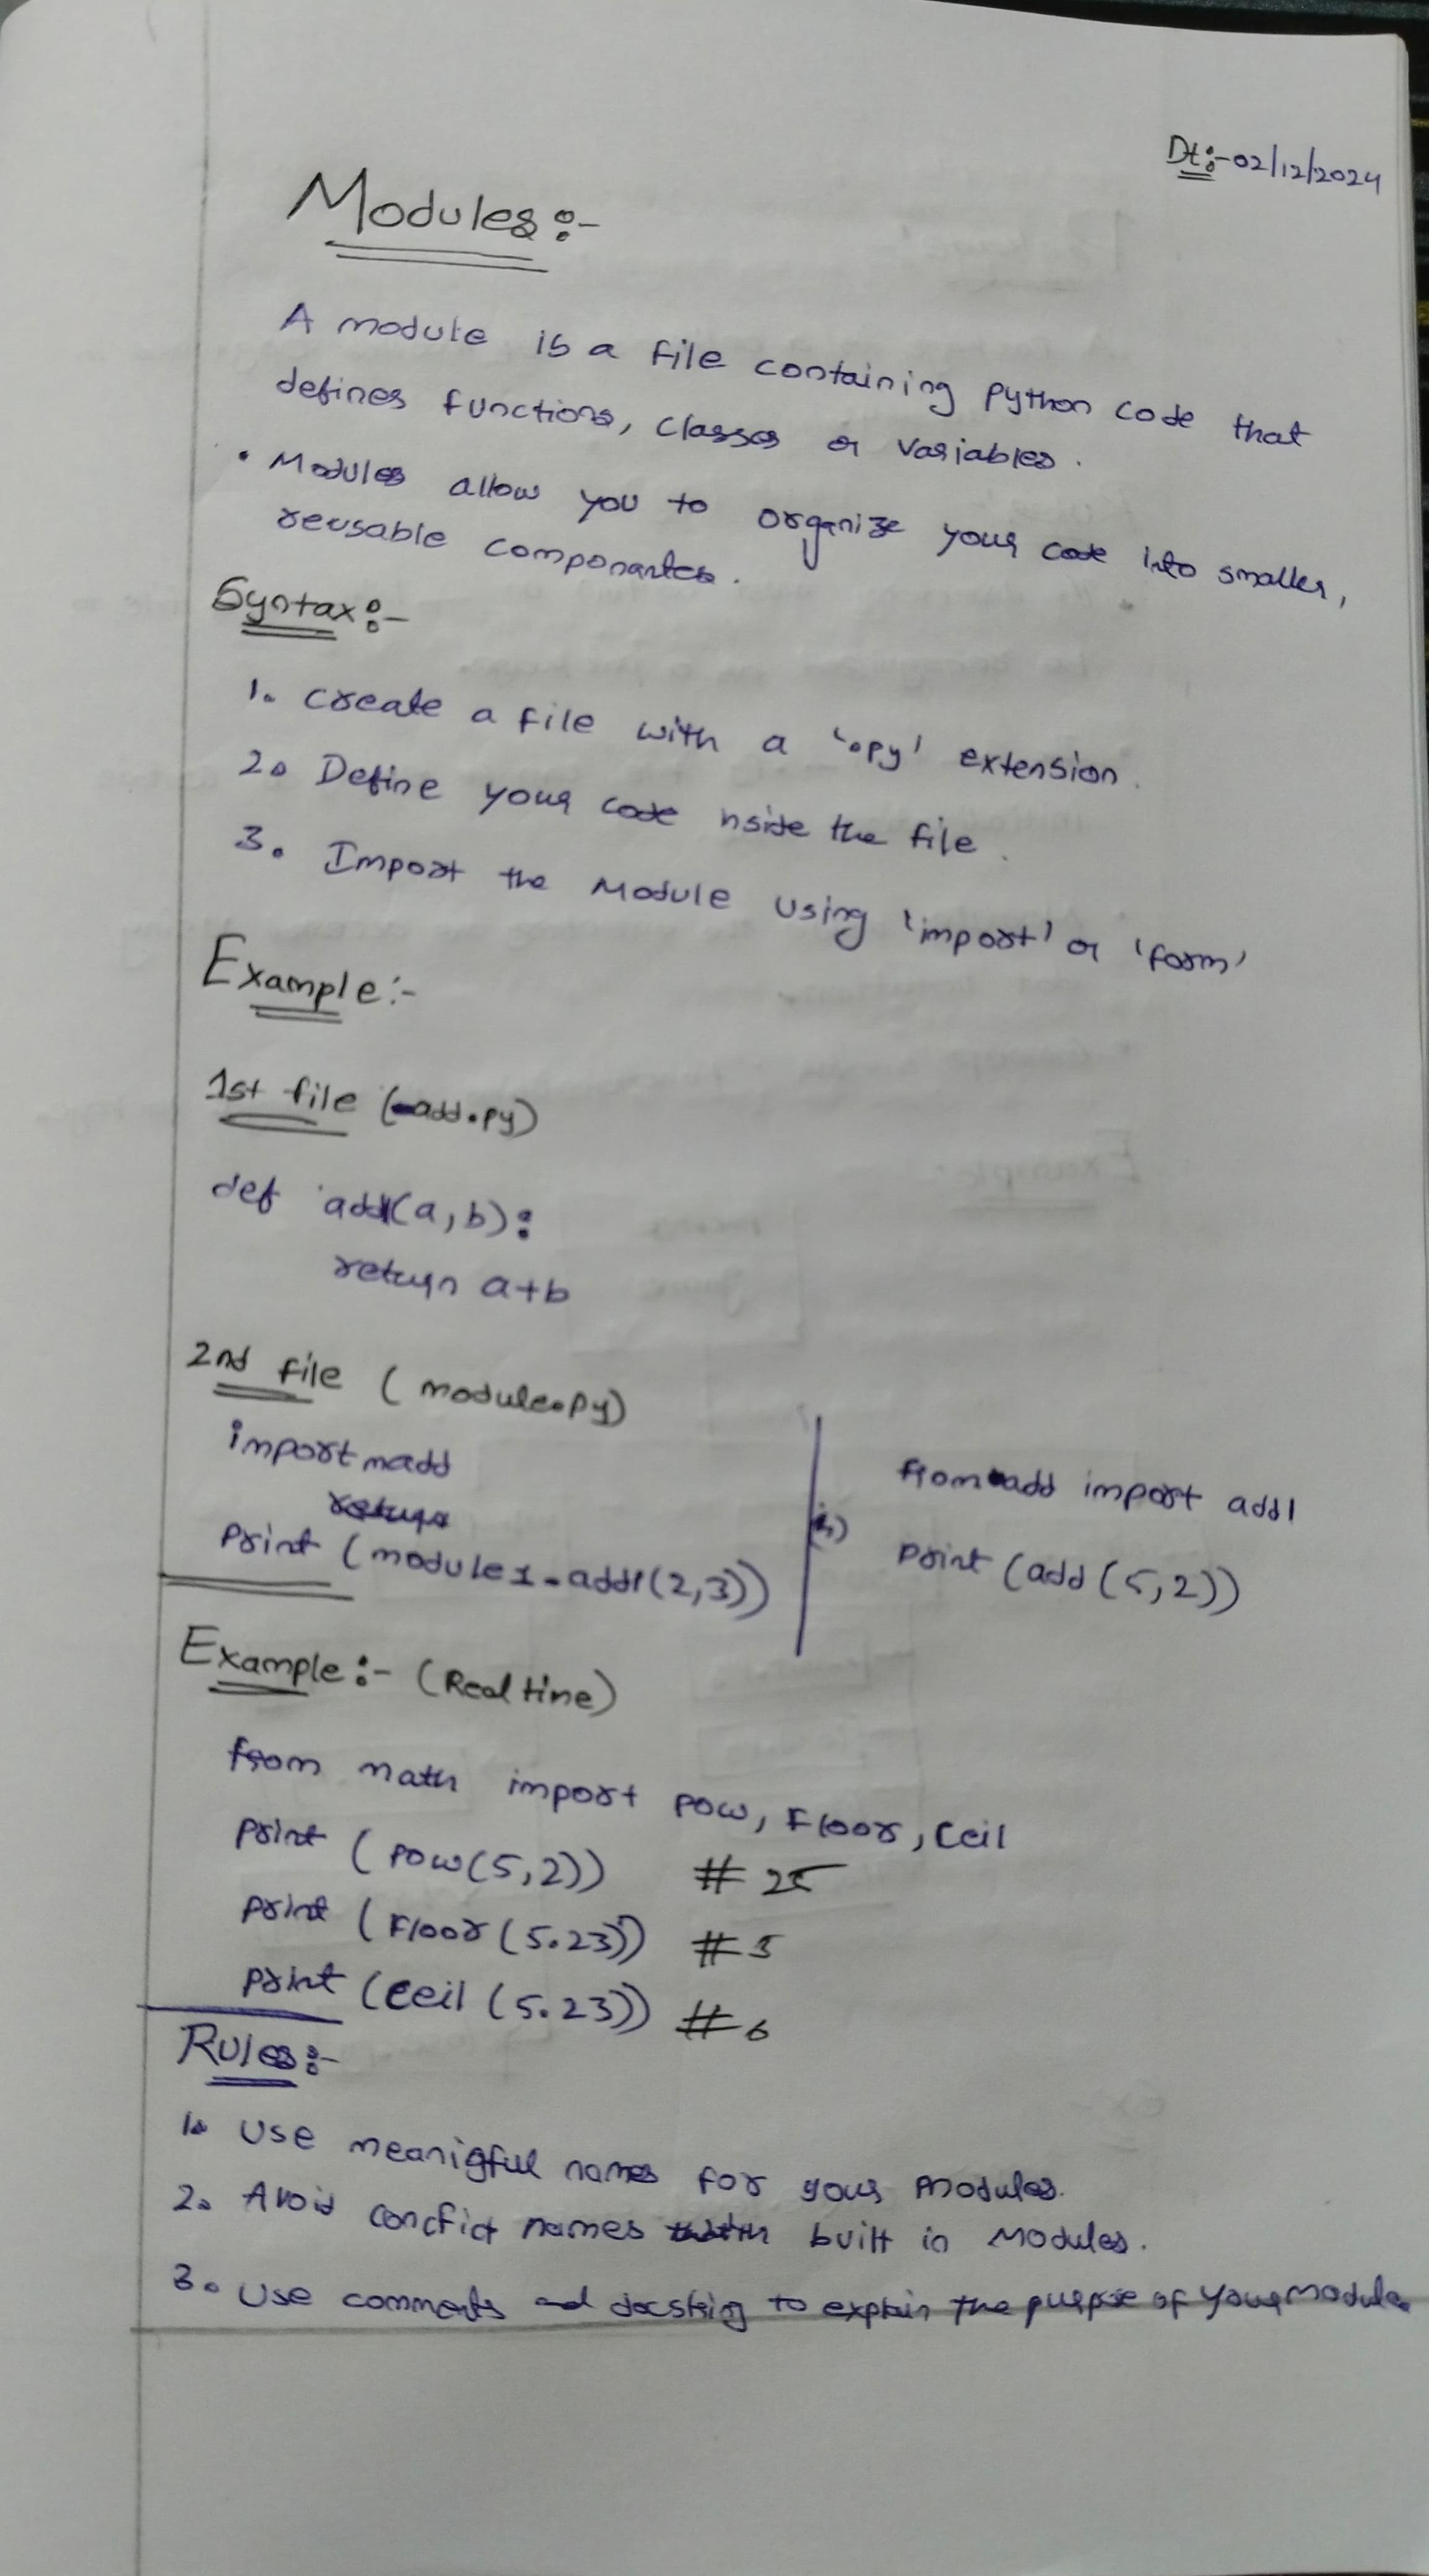 Dt:-02/12/2024
Modules:-
A module is a file containing Python code that
defines functions, classes or variables.
• Modules allow you to organize your code into smaller,
reusable componantes.
Syntax:-
1. Create a file with a '.py' extension.
2. Define your code nside the file.
3. Import the Module using 'import' or 'form'
Example:-
1st file (add.py)
def add1(a,b):
return a+b
2nd file (module.py)
import madd
return
print (module1.add1(2,3))
(or)
from add import add1
print (add (5,2))
Example:- (Real time)
from math import pow, Floor, Ceil
print (pow(5,2)) # 25
print (Floor (5.23)) # 5
print (Ceil (5.23)) # 6
Rules:-
1. Use meanigful names for your modules.
2. Avoid concfict names with built in Modules.
3. Use comments and docstring to explain the purpose of your Module.